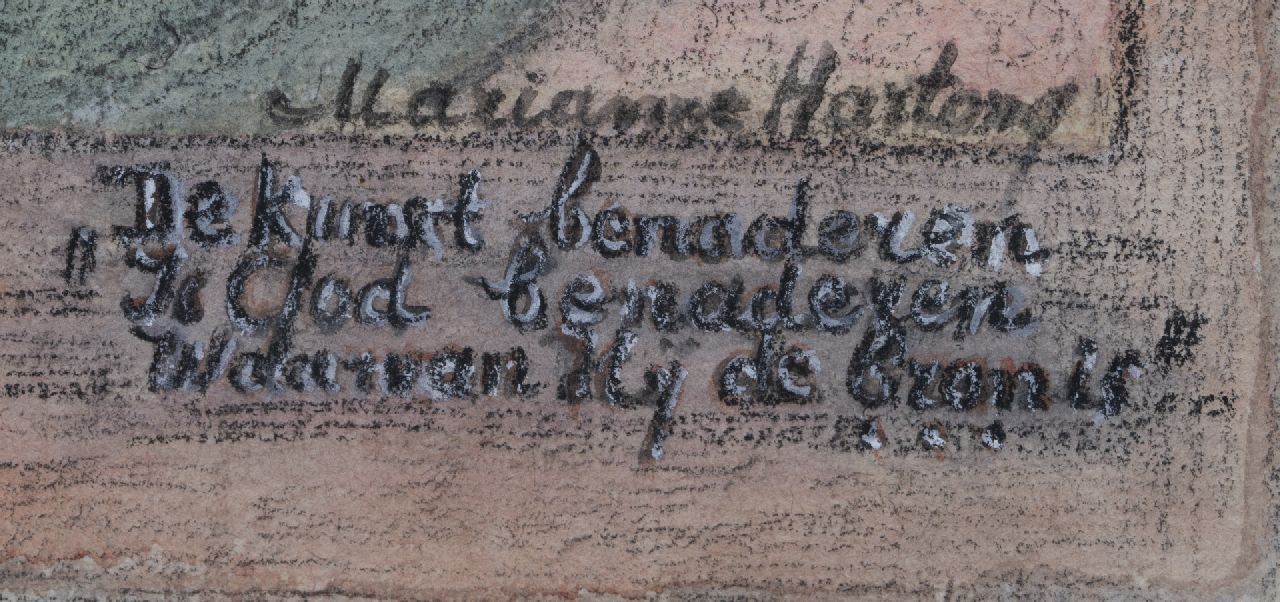 Marianne Hartong
"De kunst benaderen
Is God benaderen
Waarvan Hy de bron is"
...